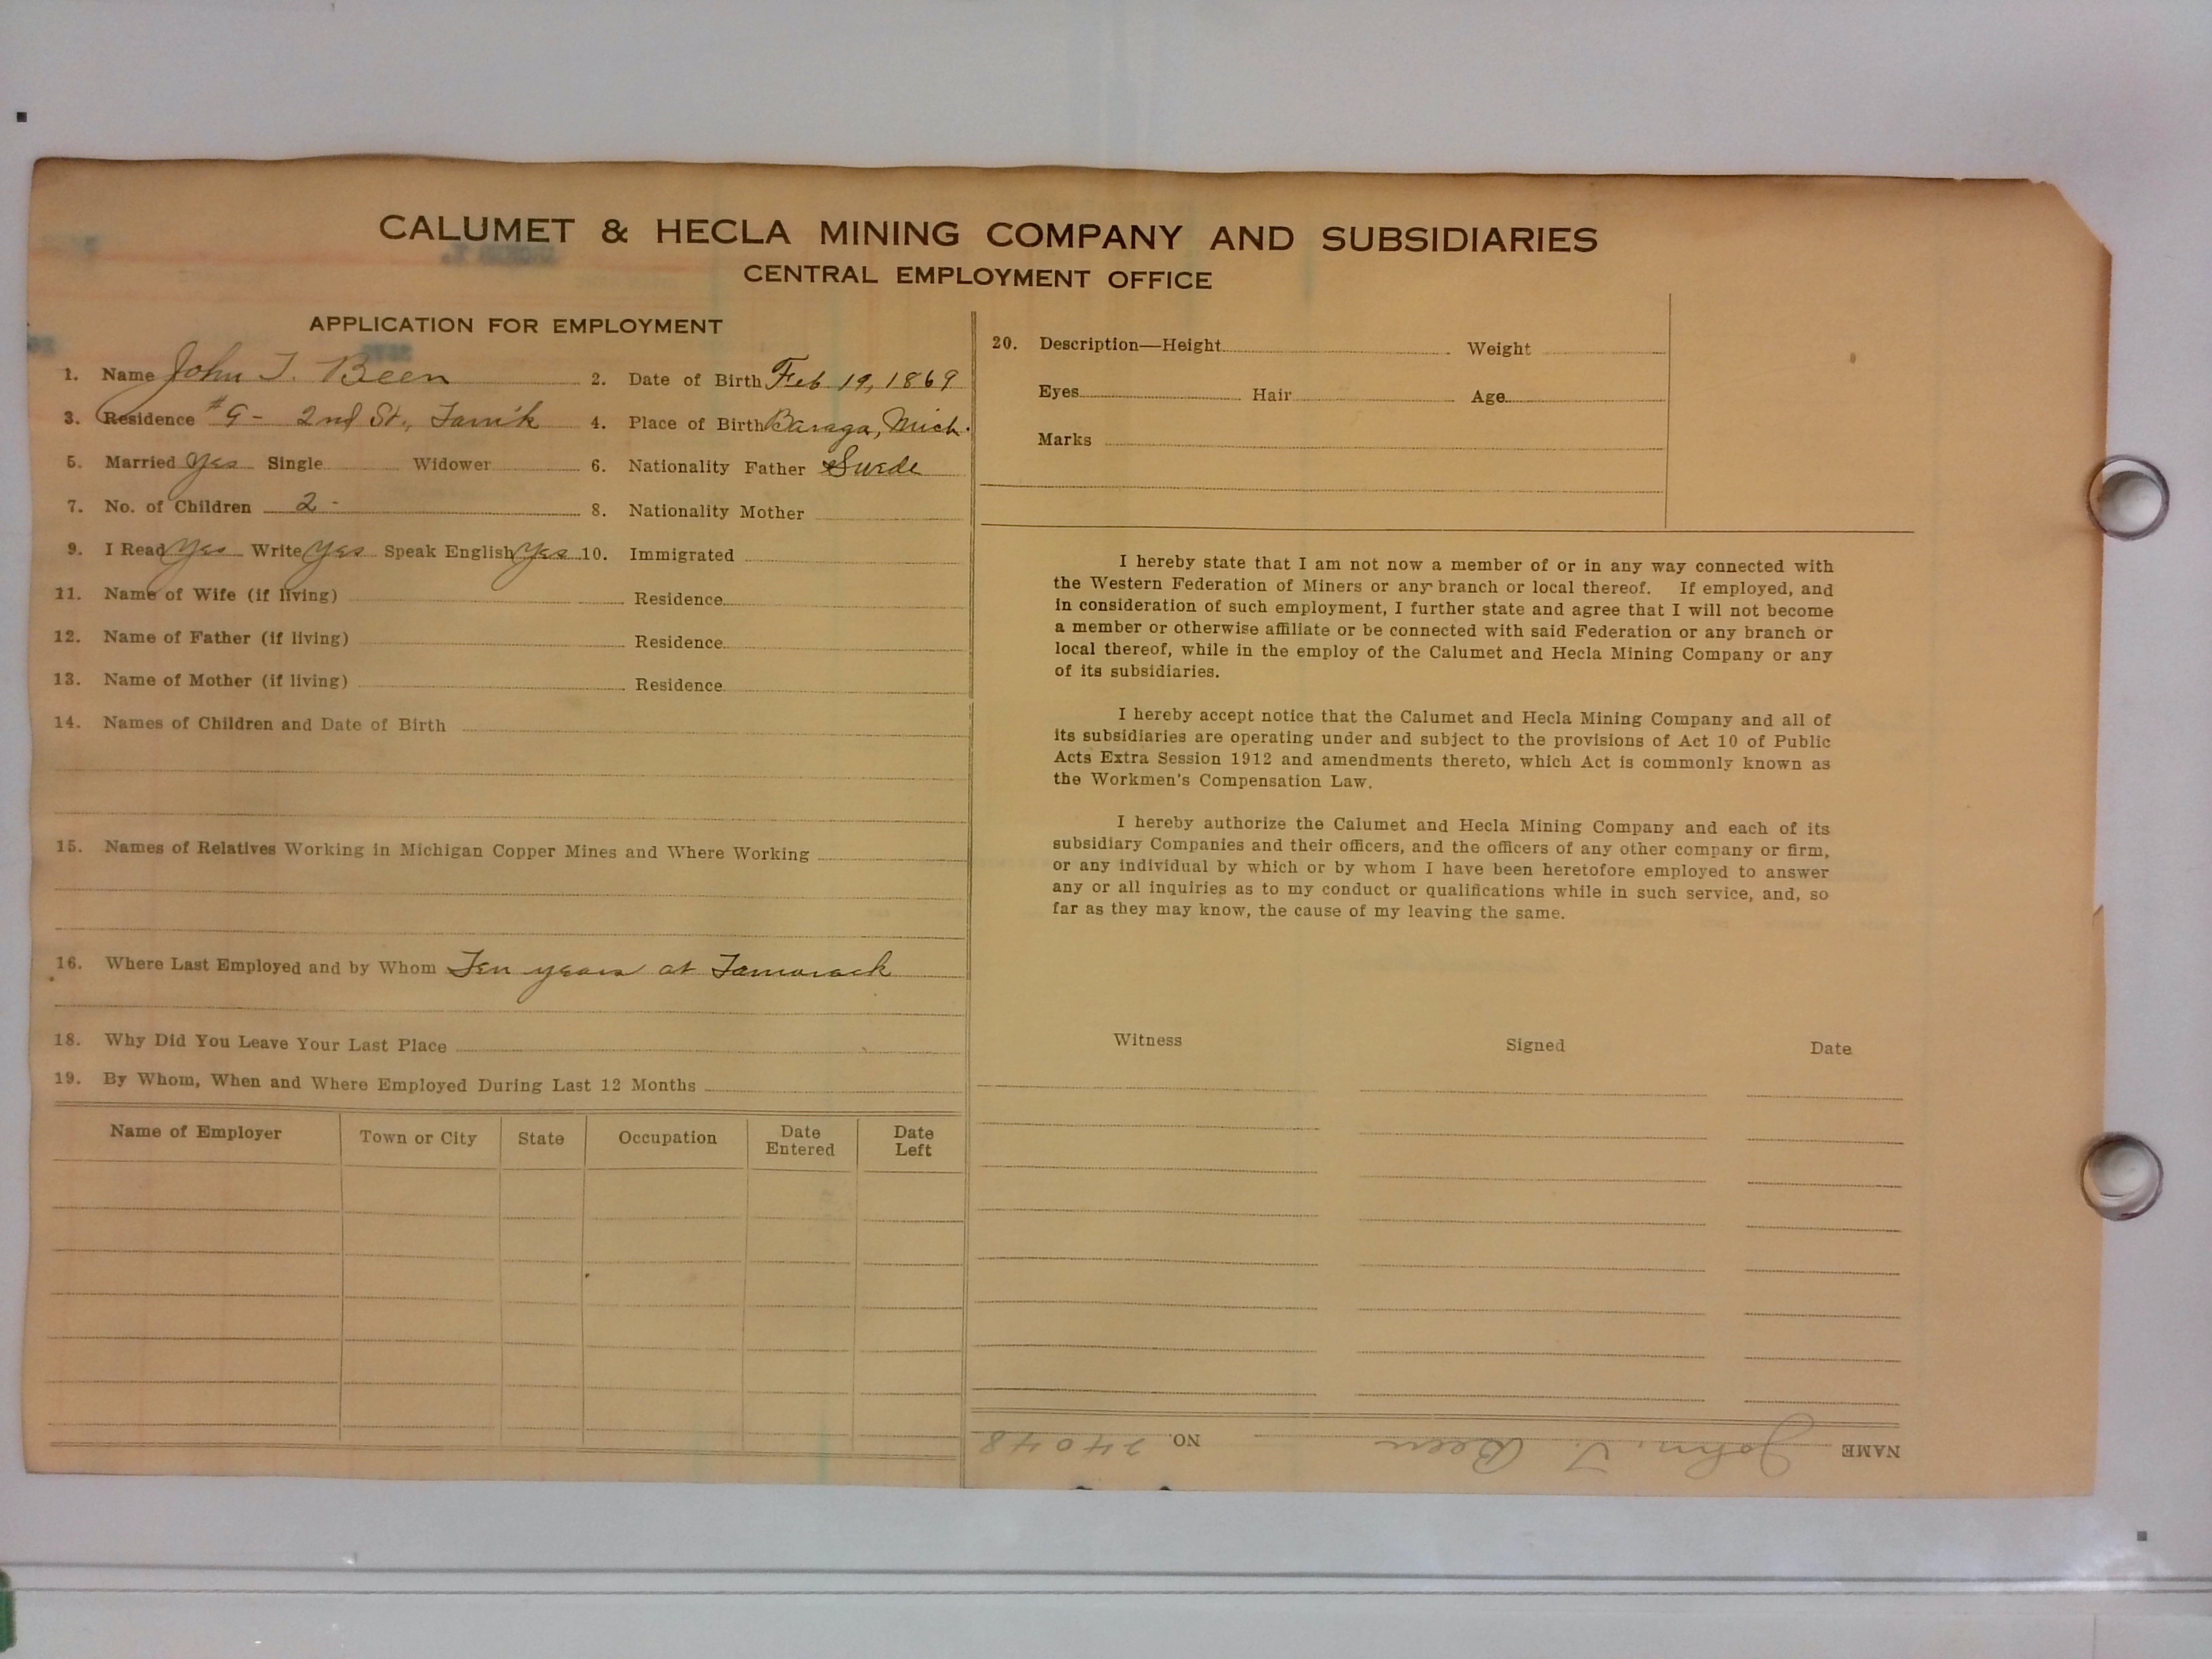 CALUMET & HECLA MINING COMPANY AND SUBSIDIARIES
CENTRAL EMPLOYMENT OFFICE
APPLICATION FOR EMPLOYMENT
1. Name John T. Been 2. Date of Birth Feb 19, 1869
3. Residence #9- 2nd St., Tam'k 4. Place of Birth Baraga, Mich.
5. Married Yes Single Widower 6. Nationality Father Swede
7. No. of Children 2 - 8. Nationality Mother
9. I Read Yes Write Yes Speak English Yes 10. Immigrated
11. Name of Wife (if living) Residence
12. Name of Father (if living) Residence
13. Name of Mother (if living) Residence
14. Names of Children and Date of Birth
15. Names of Relatives Working in Michigan Copper Mines and Where Working
16. Where Last Employed and by Whom Ten years at Tamarack
18. Why Did You Leave Your Last Place
19. By Whom, When and Where Employed During Last 12 Months
Name of Employer Town or City State Occupation Date Entered Date Left
20. Description—Height Weight
Eyes Hair Age
Marks
I hereby state that I am not now a member of or in any way connected with
the Western Federation of Miners or any branch or local thereof. If employed, and
in consideration of such employment, I further state and agree that I will not become
a member or otherwise affiliate or be connected with said Federation or any branch or
local thereof, while in the employ of the Calumet and Hecla Mining Company or any
of its subsidiaries.
I hereby accept notice that the Calumet and Hecla Mining Company and all of
its subsidiaries are operating under and subject to the provisions of Act 10 of Public
Acts Extra Session 1912 and amendments thereto, which Act is commonly known as
the Workmen's Compensation Law.
I hereby authorize the Calumet and Hecla Mining Company and each of its
subsidiary Companies and their officers, and the officers of any other company or firm,
or any individual by which or by whom I have been heretofore employed to answer
any or all inquiries as to my conduct or qualifications while in such service, and, so
far as they may know, the cause of my leaving the same.
Witness Signed Date
NAME John. T. Been NO. 24048